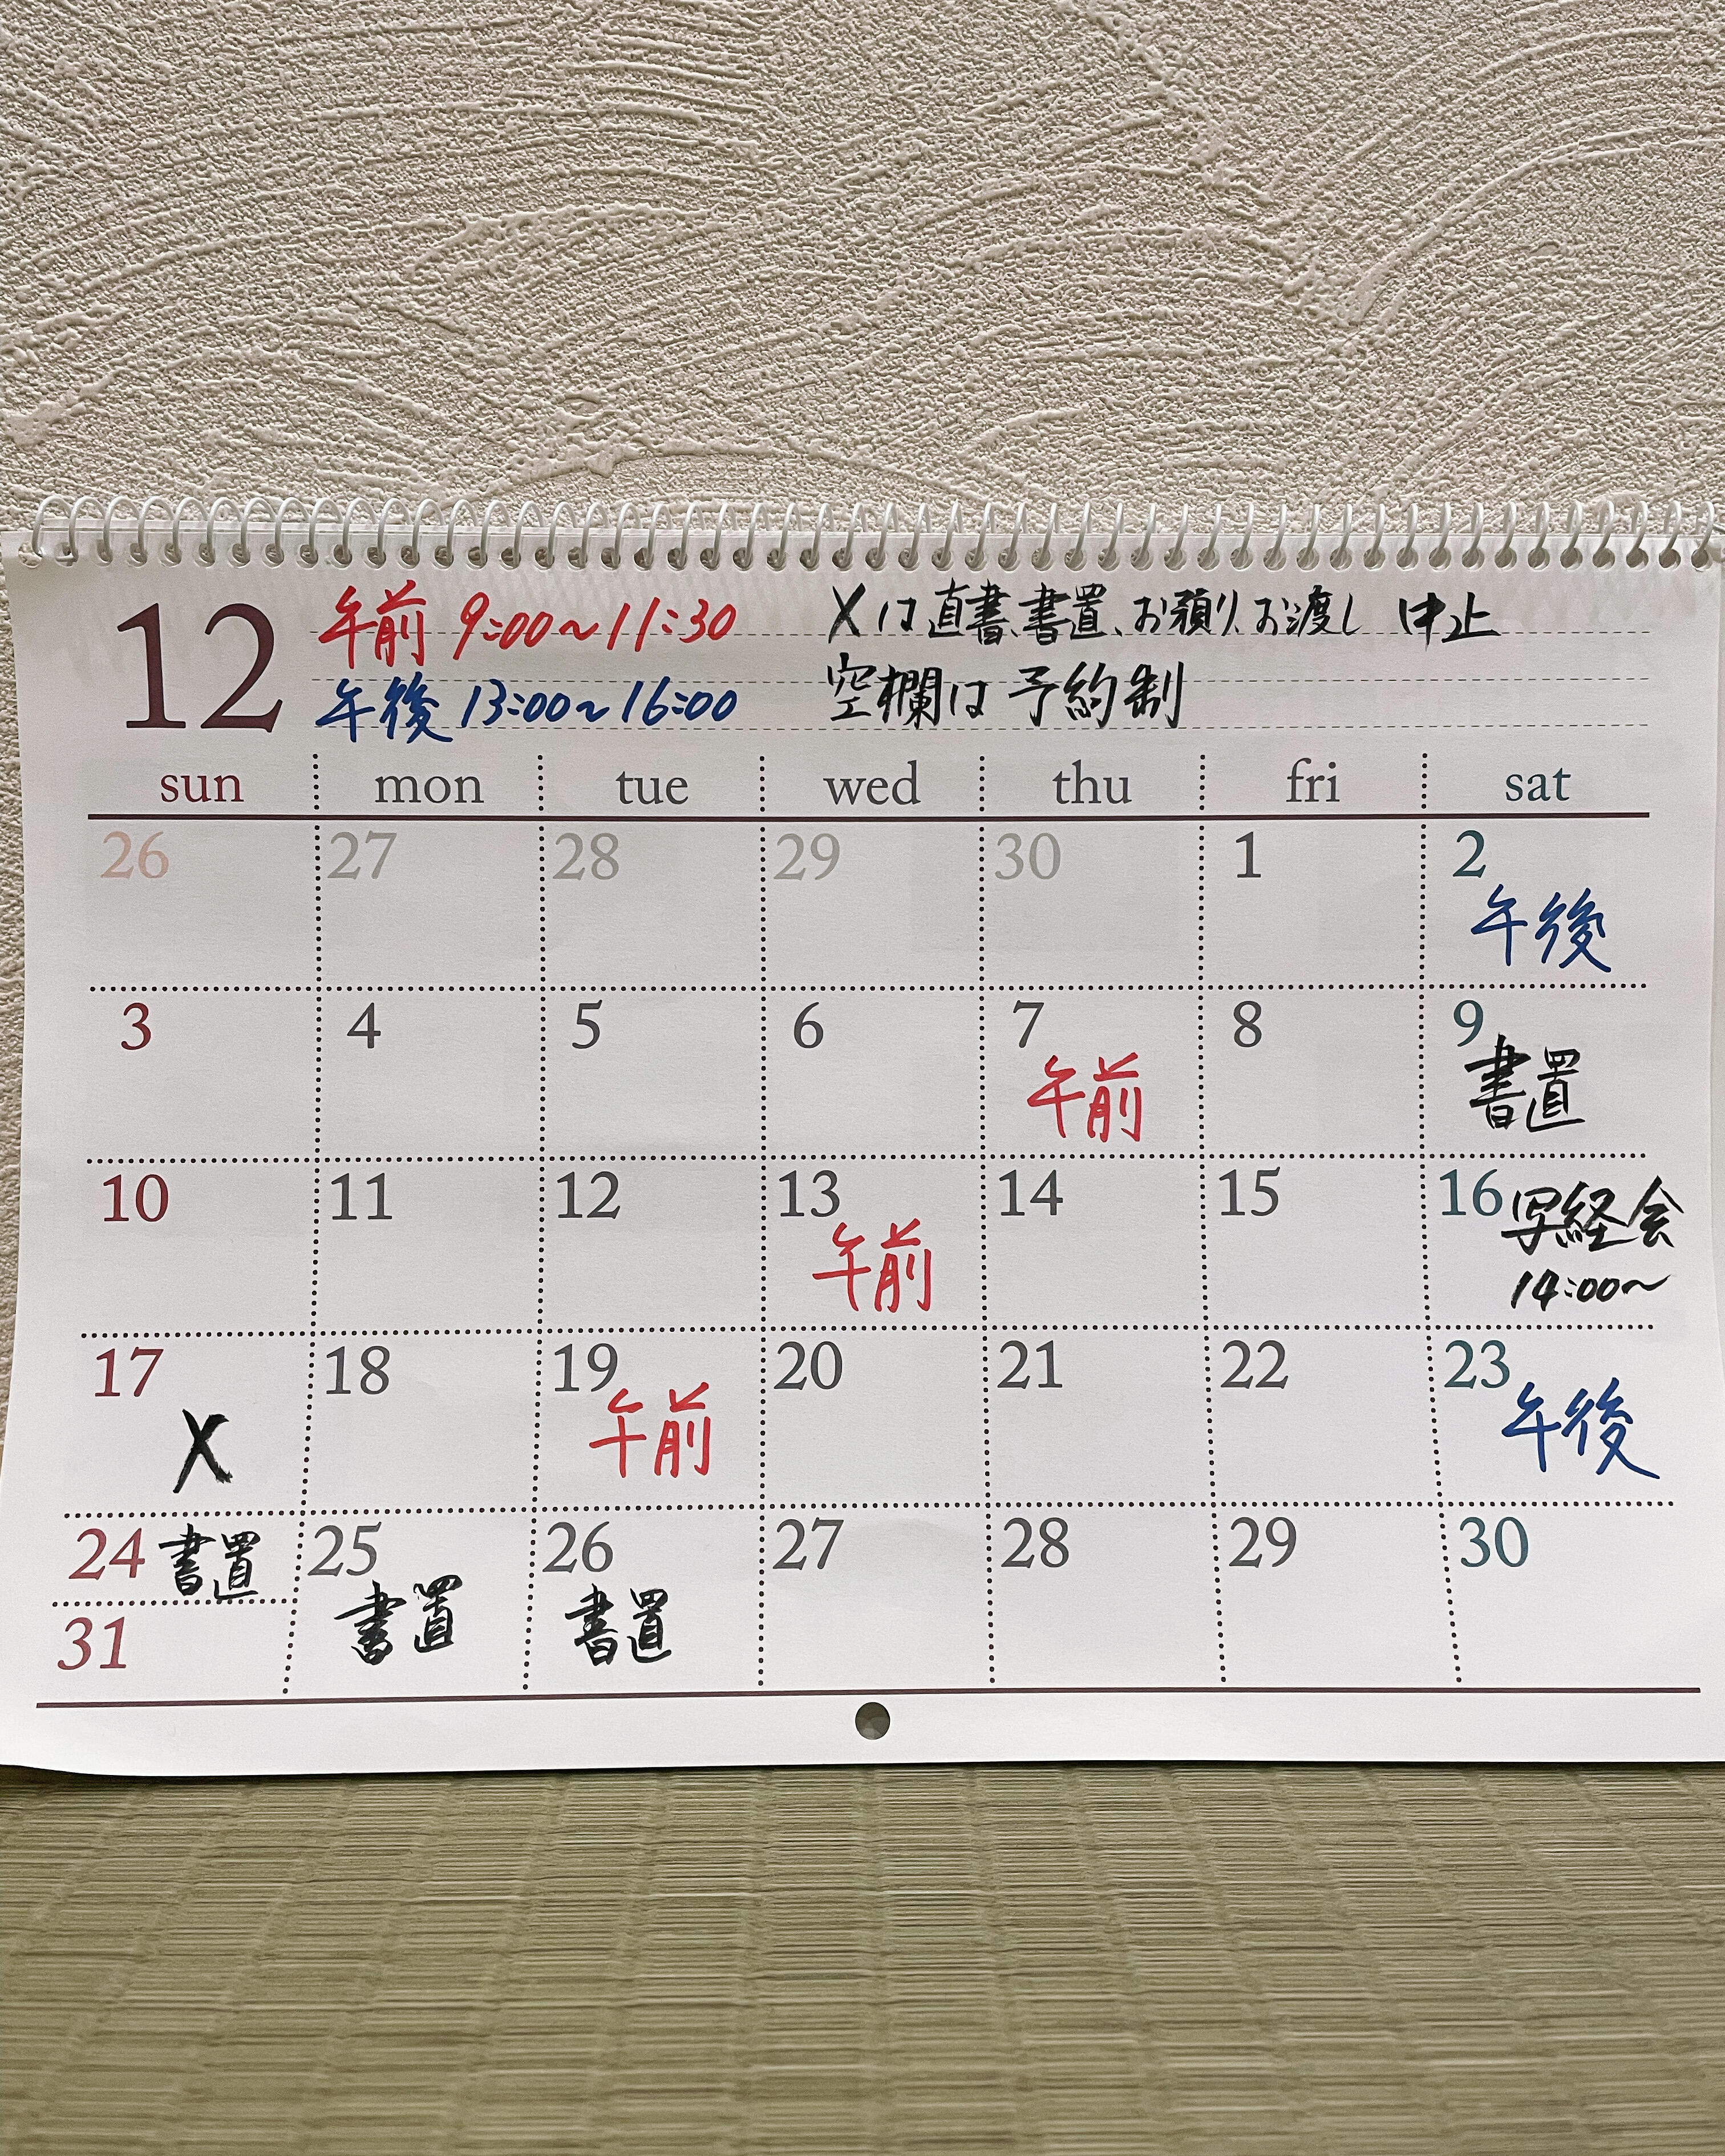 12
午前 9:00～11:30
午後 13:00～16:00
Xは直書、書置、お預り、お渡し 中止
空欄は 予約制
sun mon tue wed thu fri sat
26 27 28 29 30 1 2
午後
3 4 5 6 7 8 9
午前 書置
10 11 12 13 14 15 16 写経会
午前 14:00～
17 18 19 20 21 22 23
X 午前 午後
24 書置 25 26 27 28 29 30
31 書置 書置